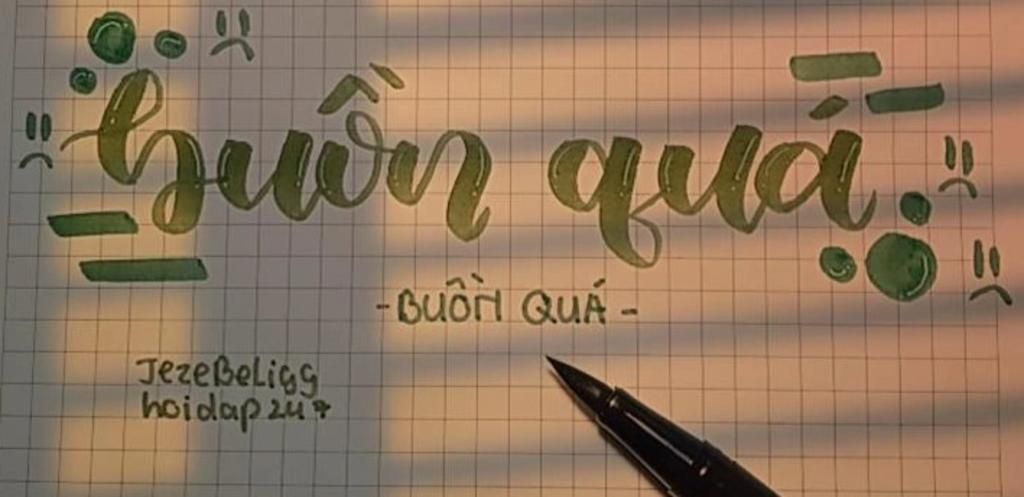 buồn quá
- BUỒN QUÁ -
JezeBeligg
hoidap247